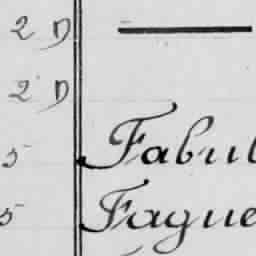 2 D
2 D
5 Fabul
5 Fague